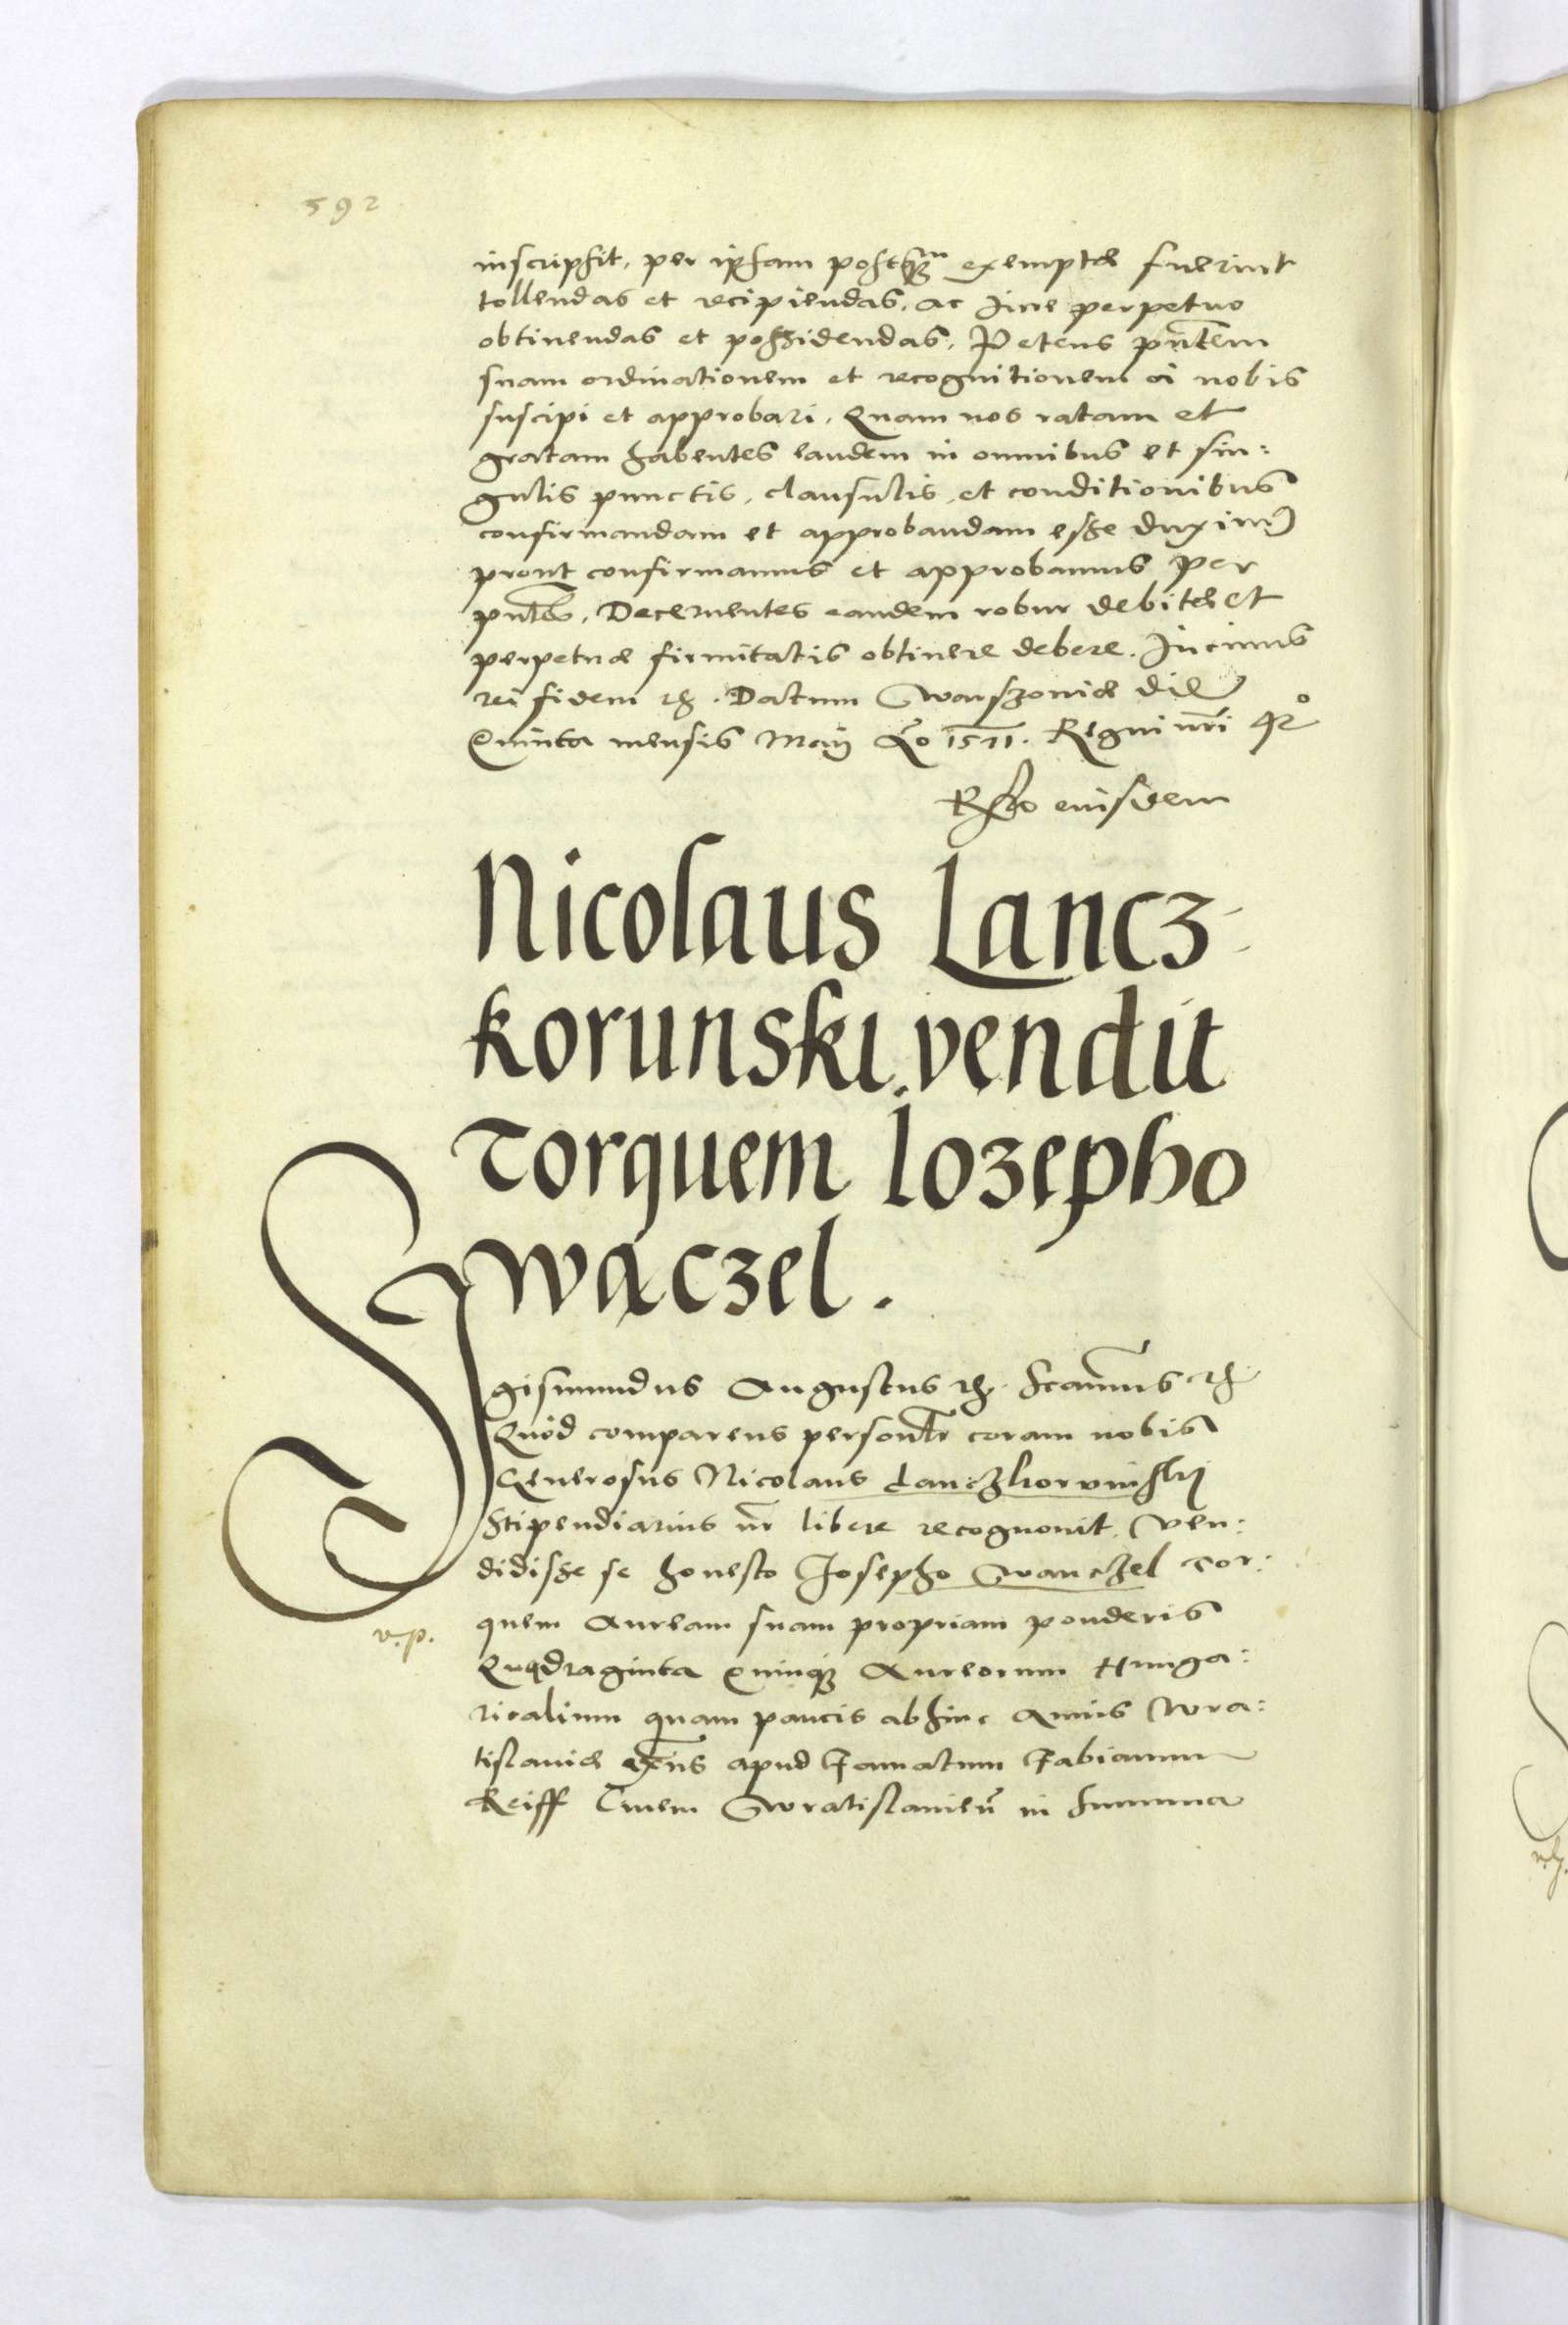 592
inscripsit, per ipsam postqȝm exemptae fuerint
tollendas et recipiendas, ac iure perpetuo
obtinendas et possidendas, Petens pñtem
suam ordinationem et recognitionem à nobis
suscipi et approbari. Quam nos ratam et
gratam habentes eandem in omnibus et sin:
gulis punctis, clausulis, et conditionibus
confirmandam et approbandam esse duximꝰ
prout confirmamus et approbamus per
pñtes, Decernentes eandem robur debitae et
perpetuae firmitatis obtinere debere. In cuius
rei fidem etc. Datum Warszoviae die
Quinta mensis Maij Ao 1571. Regni nr̃i 42o
Rlo eiusdem
Nicolaus Lancz-
korunski vendit
Torquem Iozepho
Wączel.
Sigismundus Augustus etc. Scam̃us etc.
Quòd comparens personlr coram nobis
Generosus Nicolaus Lanczkorunskÿ
Stipendiarius nr̃ libere recognovit, Ven:
didisse se honesto Iosepho Wanczel Tor:
quem Auream suam propriam ponderis
v. p.
Quadraginta Quinqȝ Aureorum Hunga:
ricalium quam paucis abhinc Annis Wra:
tislaviae ex̃ns apud Famatum Fabianum
Reiff Civem Wratislavieñ in Summa